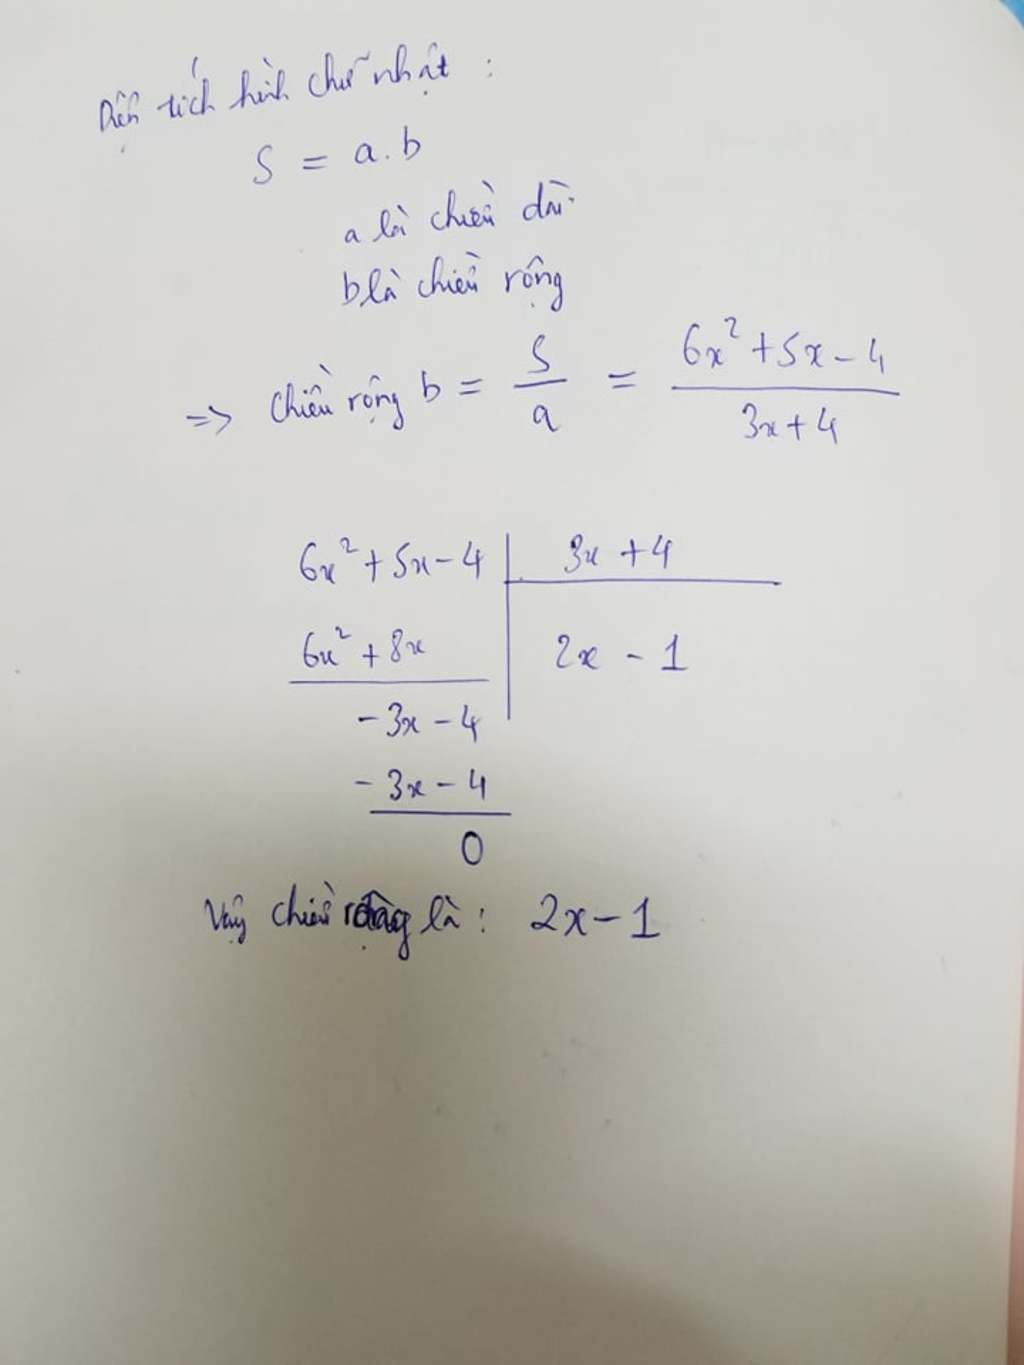 Diện tích hình chữ nhật :
S = a.b
a là chiều dài
b là chiều rộng
=> chiều rộng b = S/a = (6x² + 5x - 4)/(3x + 4)
6x² + 5x - 4 | 3x + 4
6x² + 8x | 2x - 1
- 3x - 4
- 3x - 4
0
Vậy chiều rộng là : 2x - 1